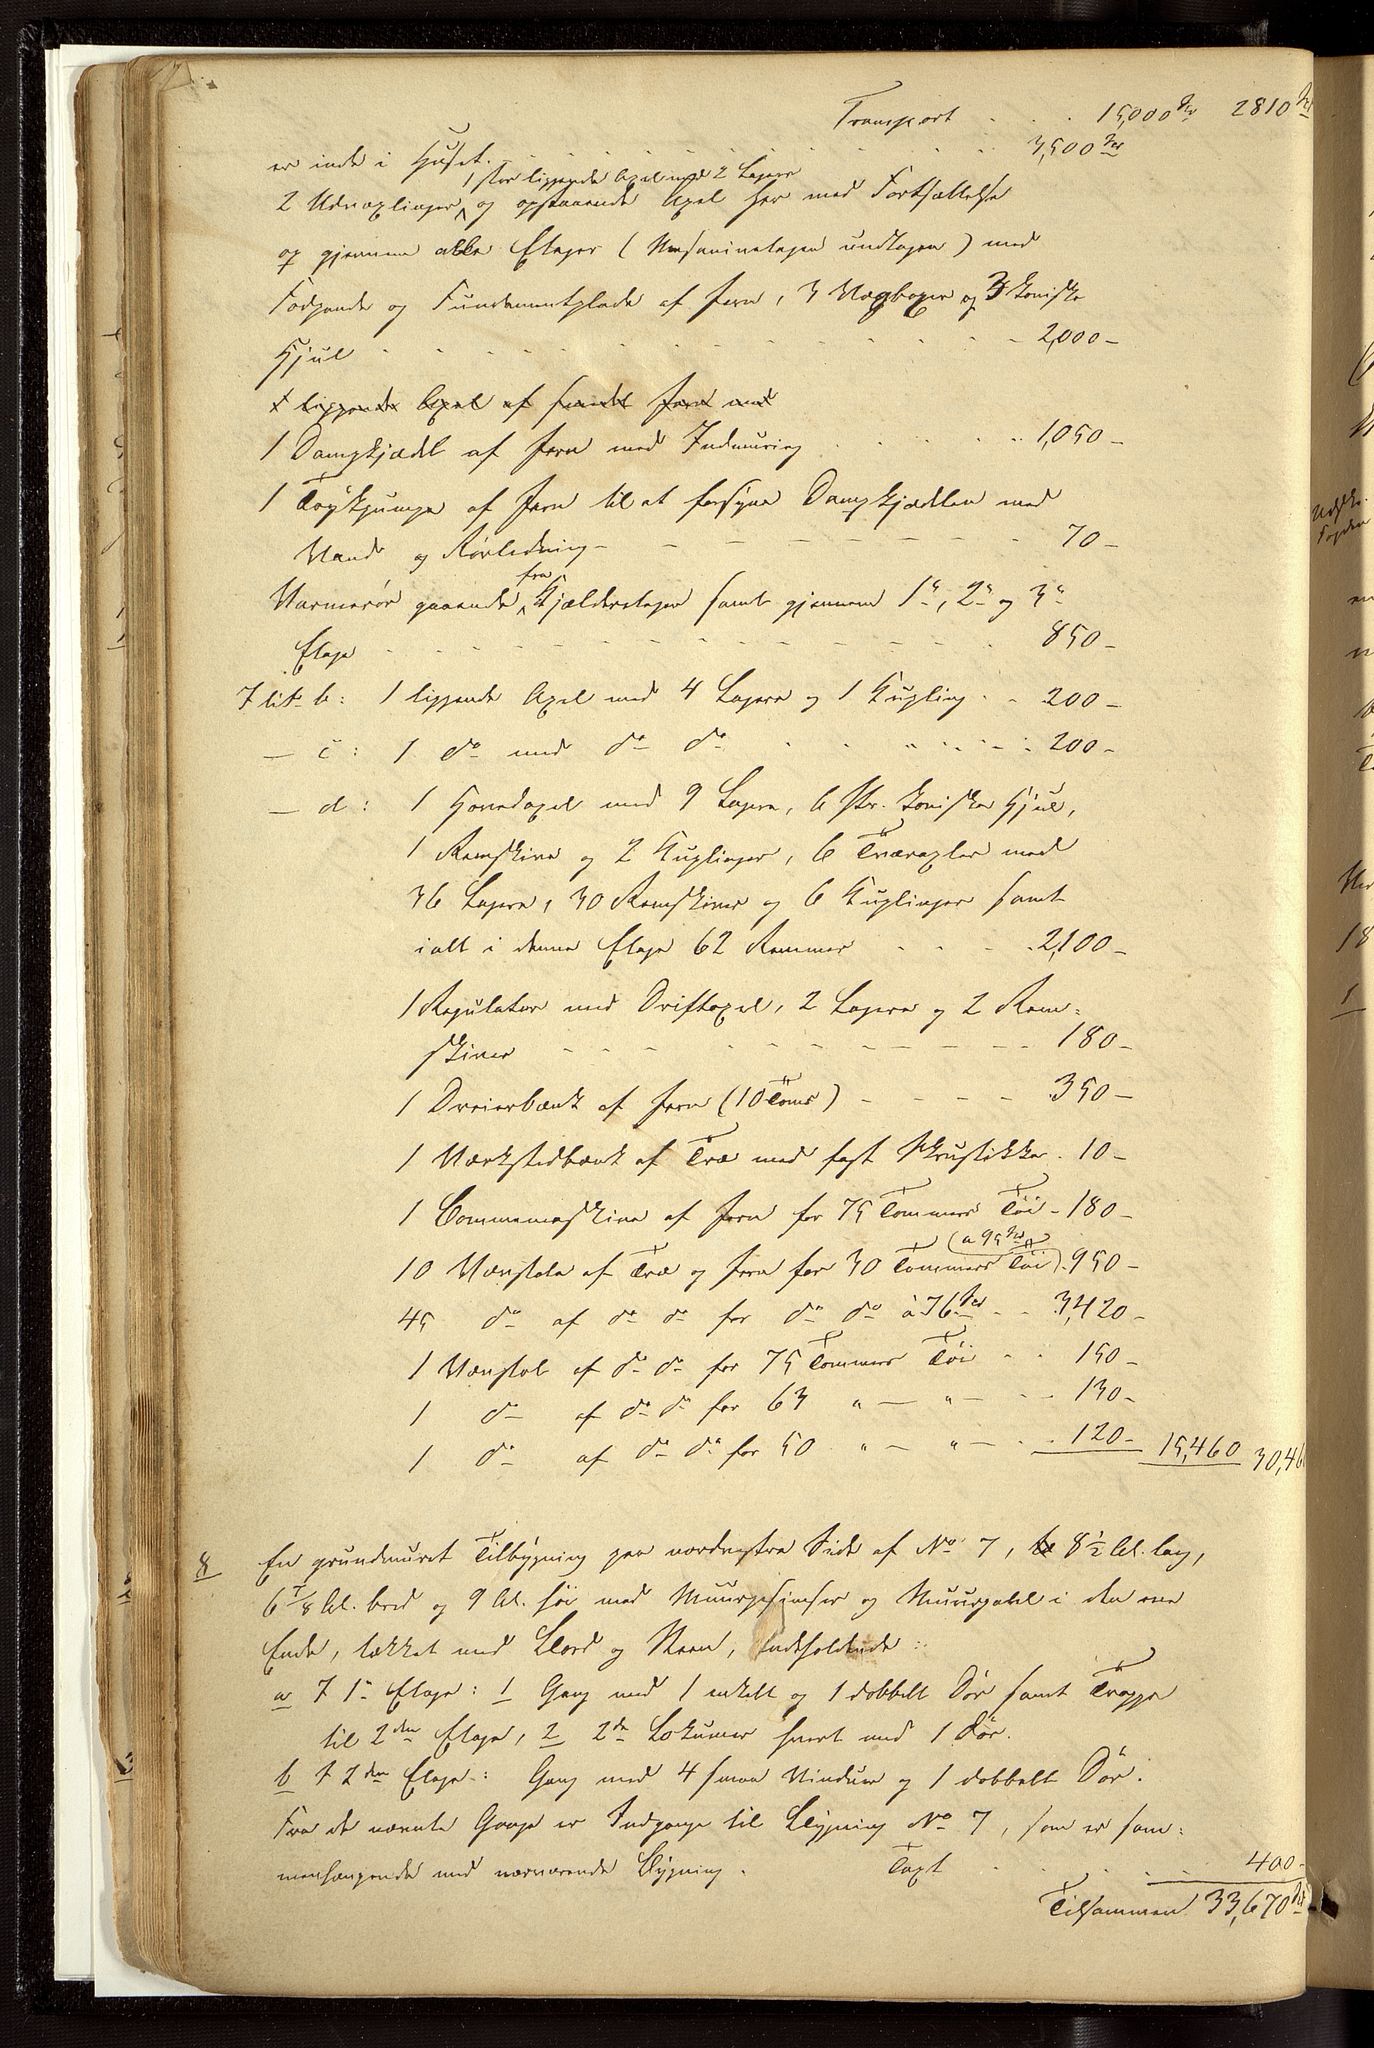 Transport . . . 15,000 Spd 2810 Spd
er inde i Huset. . . . 3,500 Spd
, stor liggende Axel med 2 Lagere
2 Udvexlinger og opstaaende Axel her med Fortsættelse
op gjennem alle Etager (Mesaninetagen undtagen) med
Fodpande og Fundamentplade af Jern, 3 Vægbøger og 3 koniske
Hjul . . . 2,000 –
1 liggende Axel af smedet Jern med
1 Dampkjædel af Jern med Indmuring . . . 1,050 –
1 Trykpumpe af Jern til at forsyne Dampkjædlen med
Vand og Rørledning – – – 70 –
Varmerør gaaende fra Kjælderetagen samt gjennem 1ste, 2den og 3die
Etage . . . 850 –
7 lit. b: 1 liggende Axel med 4 Lagere og 1 Kupling . . 200 –
— c: 1 do med do do . . . 200 –
— d: 1 Hovedaxel med 9 Lagere, 6 Par koniske Hjul,
1 Remskive og 2 Kuplinger, 6 Tværaxler med
36 Lagere, 30 Remskiver og 6 Kuplinger samt
ialt i denne Etage 62 Remmer . . . 2,100 –
1 Regulator med Driftaxel, 2 Lagere og 2 Rem-
skiver – – – 180 –
1 Dreierbænk af Jern (10 Toms) – – – 350 –
1 Værkstedbænk af Træ med fast Skrustikke . 10 –
1 Bommemaskine af Jern for 75 Tommers Tøi – 180 –
(a 95 Spd)
10 Vævstole af Træ og Jern for 30 Tommers Tøi . 950 –
45 do af do do for do do a 76 Spd . . 3,420 –
1 Vævstol af do do for 75 Tommers Tøi . . 150 –
1 do af do do for 63 " — " — . . 130 –
1 do af do do for 50 " — " — . . 120 – 15,460 30,460
8 En grundmuret Tilbygning paa nordvestre Side af No 7, 8 1/2 Al. lang,
6 7/8 Al. bred og 9 Al. høi med Muurgesimser og Muurgavl i den ene
Ende, tækket med Bord og Steen, Indholdende:
a I 1ste Etage: 1 Gang med 1 enkelt og 1 dobbelt Dør samt Trappe
til 2den Etage, 2 2de Lokumer hvert med 1 Dør.
b I 2den Etage: Gang med 4 smaa Vinduer og 1 dobbelt Dør.
Fra de nævnte Gange er Indgange til Bygning No 7, som er sam-
menhængende med nærværende Bygning. Taxt . . . 400 –
Tilsammen 33,670 Spd